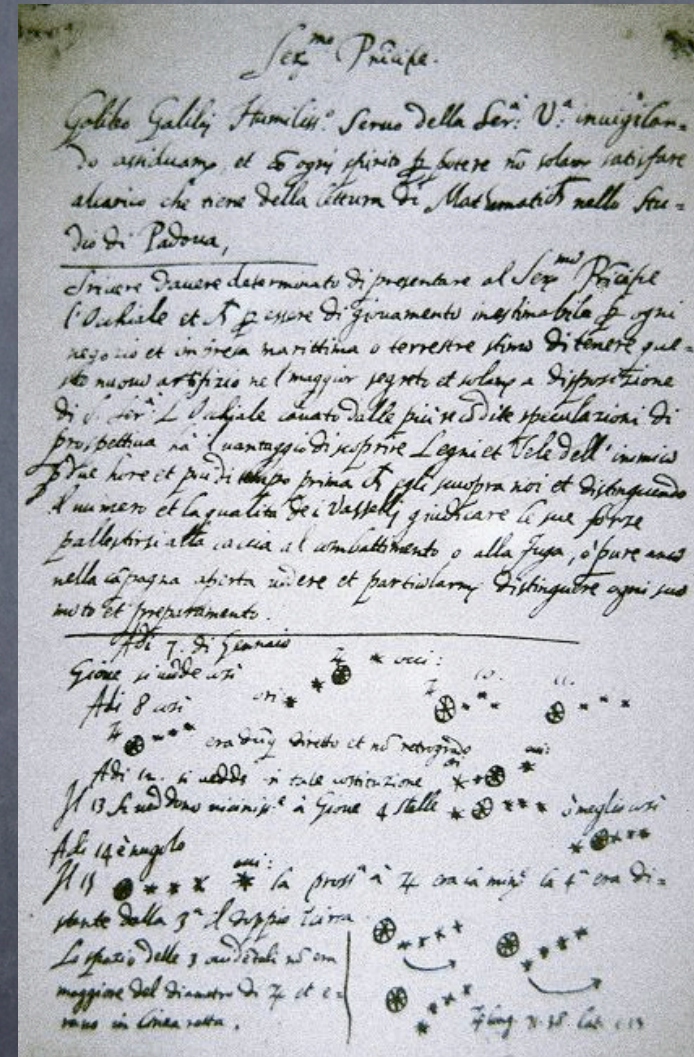 Ser.mo Prîcipe.
Galileo Galilej Humiliss.o Seruo della Ser.a V.a inuigilan=
do assiduam.te et cõ ogni spirito p potere nõ solam.te satisfare
alcarico che tiene della lettura di Mathematich nello stu=
dio di Padoua,
Scriuere dauere determinato di presentare al Ser.mo Prîcipe
l'Occhiale et p essere di giouamento inestimabile p ogni
negozio et impresa marittima o terrestre stimo di tenere que=
sto nuouo artifizio nel maggior segreto et solam.te a disposizione
di S. Ser.a L'Occhiale cauato dalle più recõdite speculazioni di
prospettiua hà il uantaggio di scoprire Legni et Vele dell' inimico
p due hore et più di tempo prima egli scuopra noi et distinguendo
il numero et la qualità dei Vasselli giudicare le sue forze
pallestirsi alla caccia al combattimento o alla fuga, o pure anco
nella capagna aperta uedere et particolarm.te distinguere ogni suo
moto et preparamento.
Adi 7. di Gennaio
Gioue si uedde così
occi:
Adi 8 così
ori
10. 11.
era duq diretto et nõ retrogrado
Adi 12. si uedde in tale costituzione
ori occi:
Il 13 si ueddono uicinis.e à Gioue 4 stelle
ò meglio così
Adi 14 è nugolo
Il 15
occi:
la pross.a à ♃ era la min.e la 4.a era di=
stante dalla 3.a il doppio circa
Lo spazio delle 3 occidetali nõ era
maggiore del diametro di ♃ et e=
rano in linea retta.
♃ long. 71.38 lat. 1.13